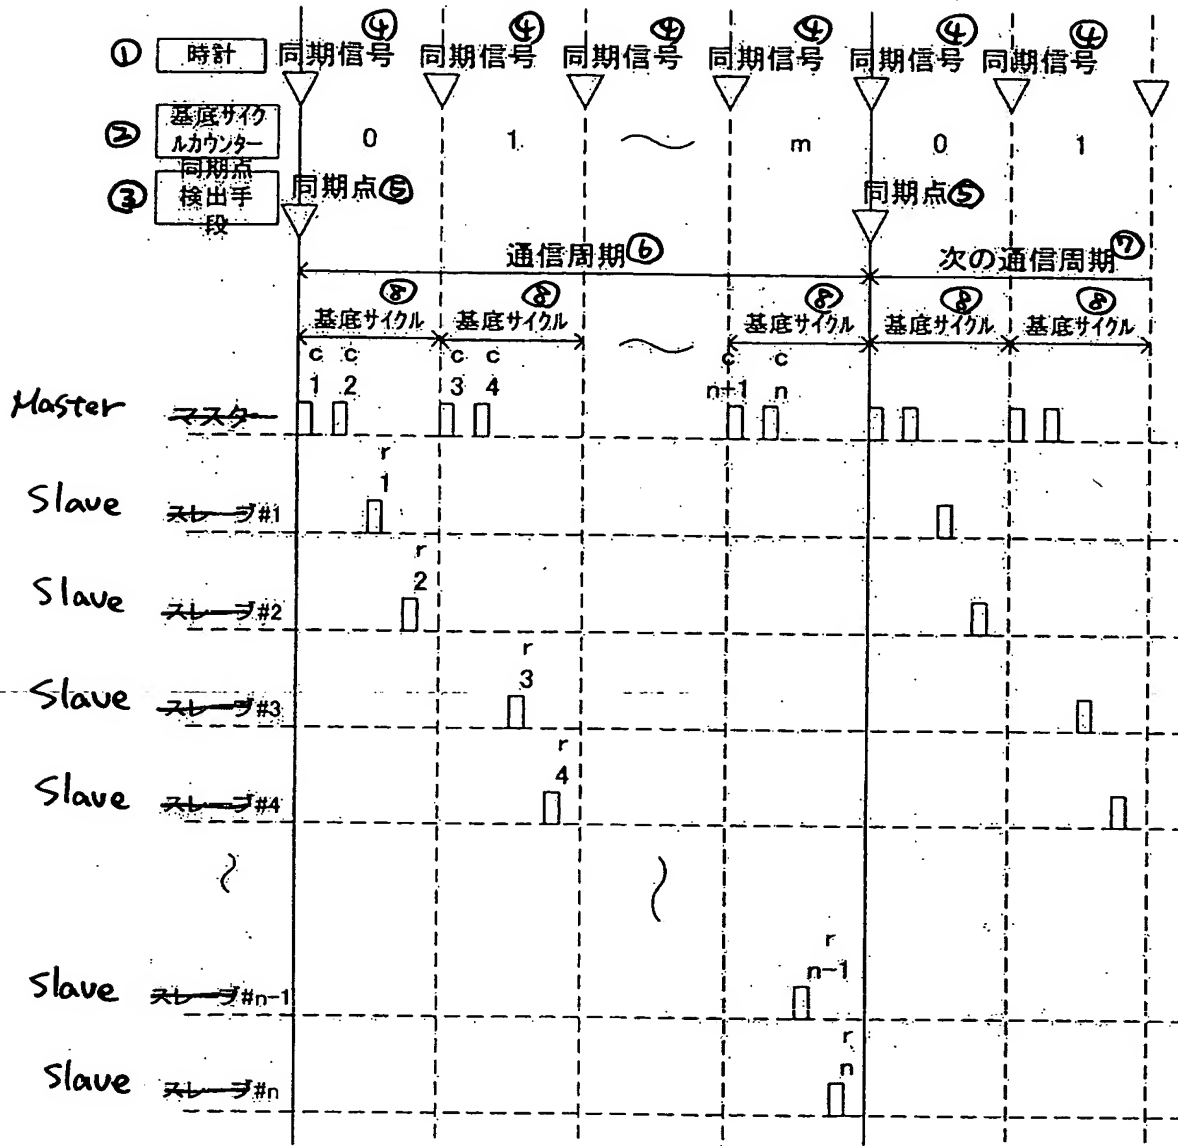 ④ ④ ④ ④ ④ ④
① 時計 同期信号 同期信号 同期信号 同期信号 同期信号 同期信号
② 基底サイク
ルカウンター 0 1 〜 m 0 1
③ 同期点
検出手
段
同期点⑤ 同期点⑤
通信周期⑥ 次の通信周期⑦
⑧ ⑧ ⑧ ⑧ ⑧
基底サイクル 基底サイクル 〜 基底サイクル 基底サイクル 基底サイクル
c c c c c c
1 2 3 4 n+1 n
Master マスター
r
1
Slave スレーブ#1
r
2
Slave スレーブ#2
r
3
Slave スレーブ#3
r
4
Slave スレーブ#4
r
n-1
Slave スレーブ#n-1
r
n
Slave スレーブ#n